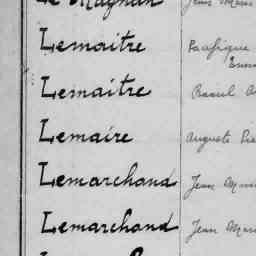 Le Magnan Jean Marie
Lemaitre Pacifique
Lemaitre Raoul
Lemaire Auguste
Lemarchand Jean Marie
Lemarchand Jean Marie